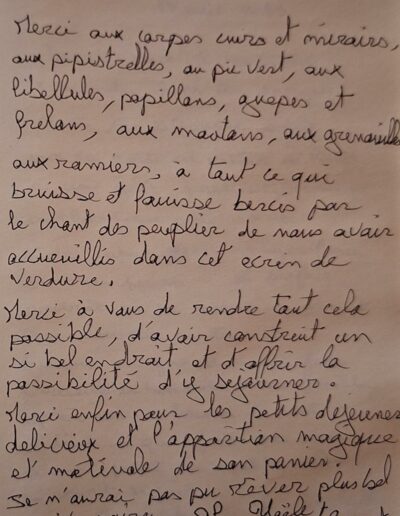 Merci aux carpes cuirs et miroirs,
aux pipistrelles, au pic vert, aux
libellules, papillons, guepes et
frelons, aux moutons, aux grenouilles
aux ramiers, à tout ce qui
bruisse et fouisse bercés par
le chant des peuplier de nous avoir
accueillis dans cet ecrin de
verdure.
Merci à vous de rendre tout cela
possible, d'avoir construit un
si bel endroit et d'offrir la
possibilité d'y sejourner.
Merci enfin pour les petits dejeuner
delicieux et l'apparition magique
et matinale de son panier.
Je n'aurai pas pu rêver plus bel